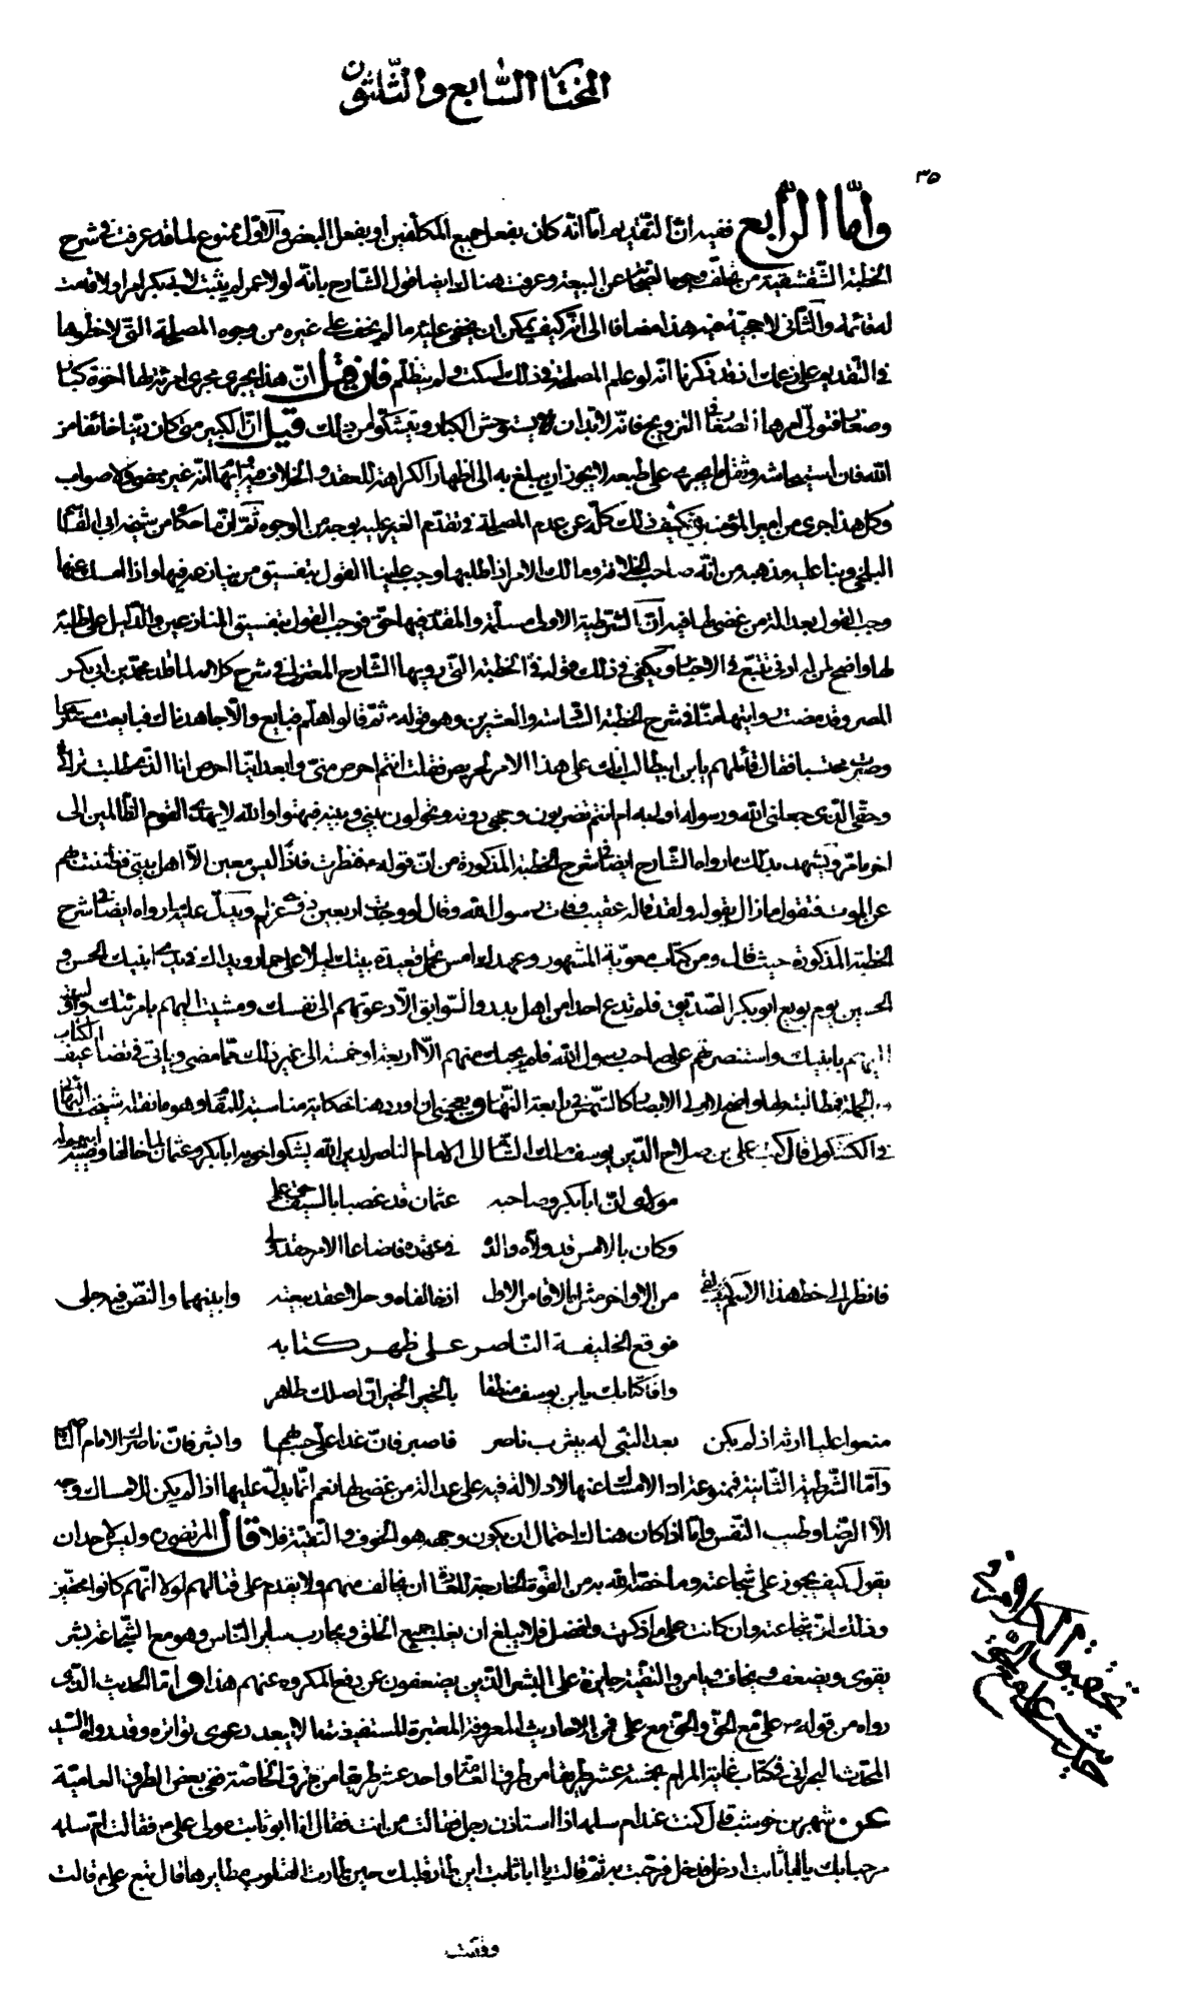 المختا السابع والثلثون
٣٥
وامّا الرّابع ففيه انّ التّقديم امّا انّه كان بفعل جميع المكلّفين او بفعل البعض والاوّل ممنوع لما قد عرفت فى شرح
الخطبة الشّقشقية من تخلّف وجوه الصّحابة عن البيعة وعرفت هناك ايضا قول الشّارح بانّه لولا عمر لم يثبت لابى بكر امر ولا قامت
له قائمة والثّانى لا حجيّة فيه هذا مضافا الى انّه كيف يمكن ان يخفى عليه ما لم يخف على غيره من وجوه المصلحة الّتى لاحظوها
فى التّقديم على زعمك اذ قد ذكرنا انّه لو علم المصلحة فى ذلك لسكت ولم يتظلّم فان قيل انّ هذا يجرى مجرى امرئة لها اخوة كبار
وصغار فتولّى امرها الصّغار فى التزويج فانّه لا بدّ ان يستوحش الكبار ويتشكّو من ذلك قيل انّ الكبير متى كان ديّنا خائفا من
الله فان استيحاشه وثقل ما يجرى على طبعه لا يجوز ان يبلغ به الى اظهار الكراهة للعقد والخلاف فيه وايهام انّه غير ممضى ولا صواب
وكل هذا جرى من امير المؤمنين فيكشف ذلك كلّه عن عدم المصلحة فى تقدّم الغير عليه بوجه من الوجوه ثمّ انّ ما حكاه من شيخه ابى القاسم
البلخى وبنا عليه مذهبه من انّه صاحب الخلافة ومالك الامر اذا طلبها وجب علينا القول بتفسيق من ينازعه فيها واذا امسك عنها
وجب القول بعدالة من غضى لها فيه انّ الشّرطية الاولى مسلّمة والمقدّم فيها حقّ فوجب القول بتفسيق المنازعين والدّليل على طلبه
لها واضح لمن له ادنى تتبّع فى الاخبار ويكفى فى ذلك قوله فى الخطبة الّتى رويها الشّارح المعتزلى فى شرح كلامه لما قلّد محمّد بن ابى بكر
المصر وقد مضت روايتها منّا فى شرح الخطبة السّادسة والعشرين وهو قوله ثمّ قالوا هلم فبايع والّا جاهدناك فبايعت مستكرها
وصبرت محتسبا فقال قائلهم يابن ابيطالب انّك على هذا الامر لحريص فقلت انتم احرص منّى وابعد ايّنا احرص انا الّذى طلبت تراثى
وحقّى الّذى جعلنى الله ورسوله اولى به ام انتم تضربون وجهى دونه وتحولون بينى وبينه فبهتوا والله لا يهدى القوم الظّالمين الى
اخر ما مرّ ويشهد بذلك ما رواه الشّارح ايضا فى شرح الخطبة المذكورة من انّ قوله فنظرت فاذا ليس معين الّا اهل بيتى فضننت بهم
عن الموت فنقول ما زال يقوله ولقد قاله عقيب وفات رسول الله وقال لو وجدت اربعين ذوى عزم ويدلّ عليه ما رواه ايضا فى شرح
الخطبة المذكورة حيث قال ومن كتاب معوية المشهور وعهدك امس تحمل قعيدة بيتك ليلا على حمار ويداك فى يدى ابنيك الحسن و
الحسين يوم بويع ابوبكر الصّديق فلم تدع احدا من اهل بدر والسّوابق الّا دعوتهم الى نفسك ومشيت اليهم بامرئتك وادليت
اليهم بابنيك واستنصرتهم على صاحب رسول الله فلم يجبك منهم الّا اربعة او خمسة الى غير ذلك ممّا مضى وياتى فى تضاعيف الكتاب
وبالجملة فمطالبته لها واضح لاولى الابصار كالشّمس فى رابعة النّهار ويعجبنى ان اورد هنا حكاية مناسبة للمقام وهو ما نقله شيخنا البهائى
فى الكشكول قال كتب على بن صلاح الدّين يوسف ملك الشّام الى الامام النّاصر لدين الله يشكوا اخويه ابابكر وعثمان لما خالفا وصيّة ابيهم له
مولاى انّ ابابكر وصاحبه عثمان قد غصبا بالسّيف حقّ على
وكان بالامس قد ولّاه والده فى عهده فاضاعا الامر حقد لى
فانظر الى خط هذا الاسم كيف لقى من الاواخر مثل ما لاقا من الاول اذ خالفاه وحلّا عقد بيعته وابنهما والنّصّ فيه جلى
فوقّع الخليفة النّاصر على ظهر كتابه
وافا كتابك يابن يوسف منطقا بالخير الخير انّ اصلك طاهر
منعوا عليّا ارثه اذ لم يكن بعد النّبى له بيثرب ناصر فاصبر فانّ غدا علىّ حسابهم وابشر فانّ ناصرك الامام النّاصر
وامّا الشّرطية الثّانية فممنوعة اذ الامساك عنها لا دلالة فيه على عدالة من غضى لها نعم انّما يدلّ عليها اذا لم يكن للامساك وجه
الّا الرّضا وطيب النّفس وامّا اذا كان هناك احتمال ان يكون وجهه هو الخوف والتّقيّة فلا قال المرتضى ره وليس لاحد ان
يقول كيف يجوز على شجاعته وما خصّه الله به من القوة الخارجة للعادة ان يخاف منهم ولا يقدم على قتالهم لولا انّهم كانوا محقّين
وذلك انّ شجاعته وان كانت على ما ذكرت وافضل فلا يبلغ ان يغلب جميع الخلق ويحارب ساير النّاس وهو مع الشّجاعة بشر
يقوى ويضعف ويخاف ويامن والتّقيّة جايزة على البشر الّذين يضعفون عن دفع المكروه عنهم هذا وامّا الحديث الّذى
رواه من قوله علىّ مع الحقّ والحقّ مع على فمن الاحاديث المعروفة المعتبرة المستفيضة بما لا يبعد دعوى تواتره وقد رواه السّيد
المحدّث البحرانى فى كتاب غاية المرام بخمسة عشر طريقا من طرق العامّة واحد عشر طريقا من طرق الخاصّة ففى بعض الطرق العاميّة
عن شهر بن خوشب قال كنت عند ام سلمه اذا استاذن رجل فقالت من انت فقال انا ابو ثابت مولى على فقالت امّ سلمه
مرحبا بك يا ابا ثابت ادخل فدخل فرحّبت به ثمّ قالت يا ابا ثابت اين طار قلبك حين طارت القلوب مطايرها قال تبع على قالت
وفّقت
تحقيق الكلام فى
حديث علىّ مع الحقّ